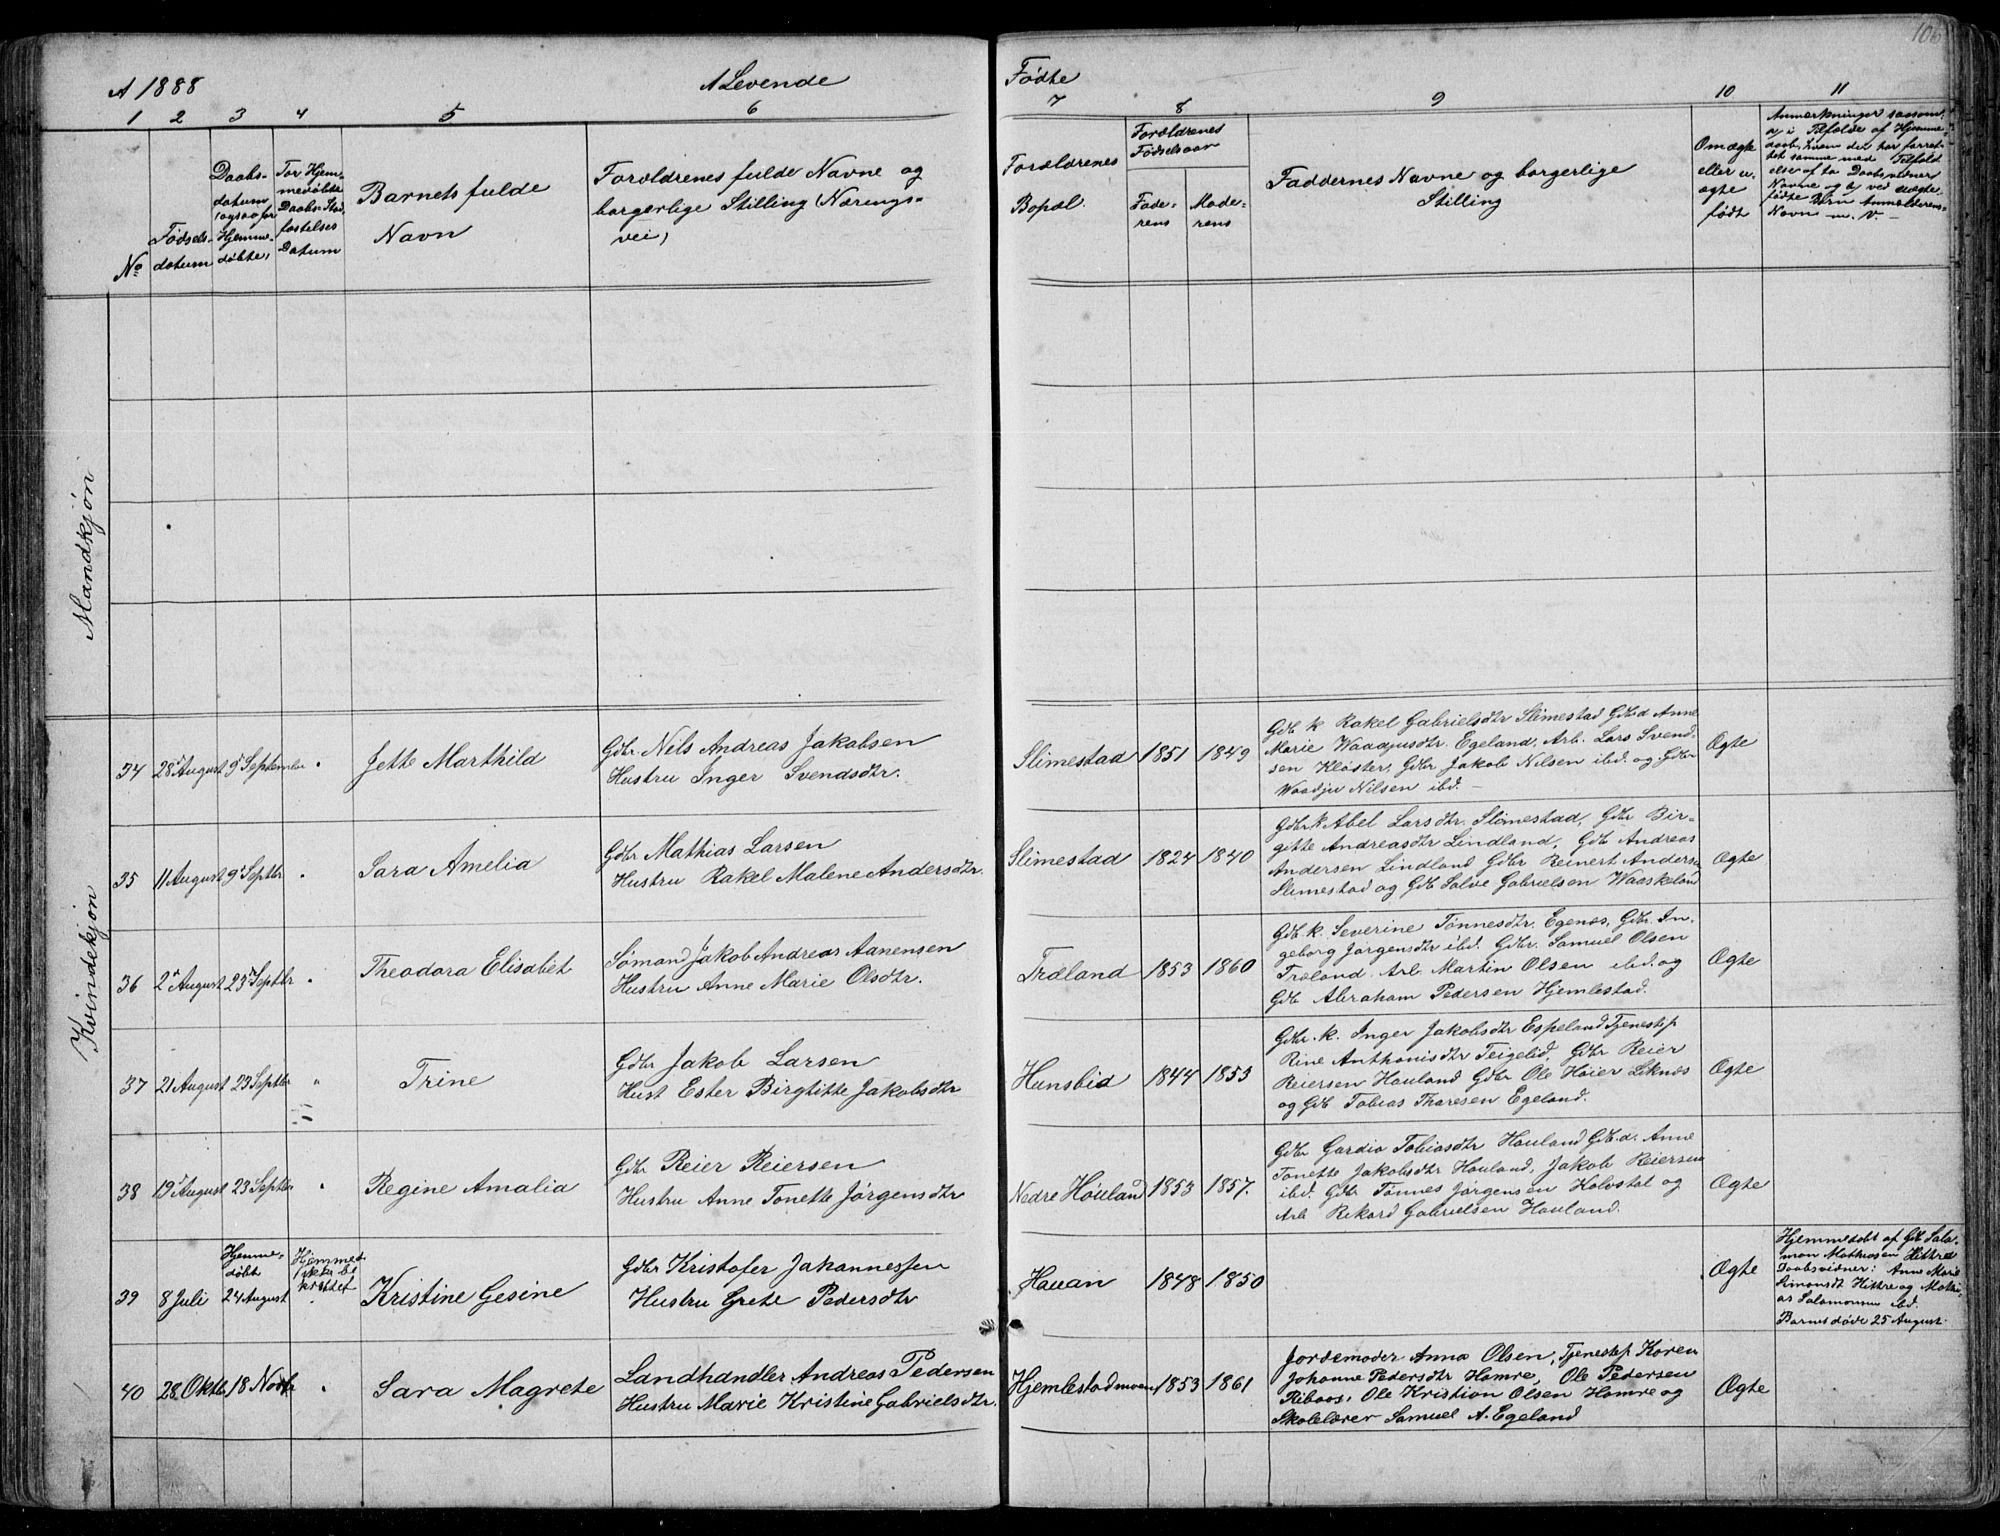 106
A 1888
A Levende
Fødte
1 2 3 4 5 6 7 8 9 10 11
No
Fødsels-
datum
Daabs-
datum
(ogsaa for
Hjemme-
døbte)
For Hjem-
medøbte
Daabs Stad-
fæstelses
Datum
Barnets fulde
Navn
Forældrenes fulde Navne og
borgerlige Stilling (Nærings-
vei)
Forældrenes
Bopæl.
Forældrenes
Fødselsaar
Fade-
rens
Mode-
rens
Faddernes Navne og borgerlige
Stilling
Om ægte
eller u-
ægte
født
Anmærkninger saasom,
a, i Tilfælde af Hjemme-
daab, hvem der har forret-
tet samme med Tilføi-
else af to Daabsvidner
Navne og b, ved uægte
fødte Børn Anmelderens
Navn m. v. -
Mandkjøn
Kvindekjøn
34 28 August 9 September "
Jette Marthild
Gdbr Nils Andreas Jakobsen
Hustru Inger Svendsdtr.
Slimestad 1851 1849
Gdb k Rakel Gabrielsdtr Slimestad Gdb.d Anne
Marie Waadjusdtr. Egeland, Arb. Lars Svend-
sen Kloster, Gdbr Jakob Nilsen ibd. og Gdbr
Waadju Nilsen ibd. -
Ægte
35 11 August 9 Septbr "
Sara Amelia
Gdbr Mathias Larsen
Hustru Rakel Malene Andersdtr.
Slimestad 1824 1840
Gdbr k Abel Larsdtr. Slimestad, Gdbr Bir-
gitte Andreasdtr Lindland, Gdb Andreas
Andersen Lindland Gdbr Reinert Anders
Slimestad og Gdb Salve Gabrielsen Waaskeland
Ægte
36 2 August 23 Septbr "
Theodora Elisabet
Sømand Jakob Andreas Aanensen
Hustru Anne Marie Olsdtr.
Træland 1853 1860
Gdb k. Severine Tønnesdtr. Egenæs, Gdbr. In-
geborg Jørgensdtr ibd. Gdbr. Samuel Olsen
Træland. Arb Martin Olsen ibd. og
Gdb Abraham Pedersen Hjemlestad.
Ægte
37 21 August 23 Septbr "
Trine
Gdbr Jakob Larsen
Hust Ester Birgitte Jakobsdtr
Hunsbid 1844 1853
Gdbr. k. Inger Jakobsdtr Espeland Tjenestep
Rine Anthonisdtr Teigelid, Gdbr Reier
Reiersen Houland Gdbr Ole Høier Liknæs
og Gdb Tobias Tharesen Egeland.
Ægte
38 19 August 23 Septbr "
Regine Amalia
Gdbr Reier Reiersen
Hustru Anne Tonette Jørgensdtr
Nedre Houland 1853 1857.
Gdbr Gardia Tobiasdtr Houland Gdb.d. Anne
Tonette Jakobsdtr Houland, Jakob Reiersen
ibd. Gdbr Tønnes Jørgensen Kolvstøl og
Arb Rikard Gabrielsen Houland.
Ægte
39 8 Juli
Hjemme-
døbt
24 August
Hjemmed
ikke be
kræftet
Kristine Gesine
Gdbr Kristofer Johannessen
Hustru Grete Pedersdtr
Hauan 1848 1850
Ægte
Hjemmedøbt af Gdb Salo-
mon Mathiasen Hittre
Daabsvidner: Anne Marie
Simonsdt Hittre og Mathi-
as Salomonsen ibd.
Barnet døde 25 August.
40 28 Oktb 18 Novbr "
Sara Magrete
Landhandler Andreas Pedersen
Hustru Marie Kristine Gabrielsdtr.
Hjemlestadmoen 1853 1861
Jordemoder Anna Olsen, Tjenestep Karen
Johanne Pedersdtr Homre, Ole Pedersen
Riboos, Ole Kristian Olsen Homre og
Skolelærer Samuel A. Egeland
Ægte